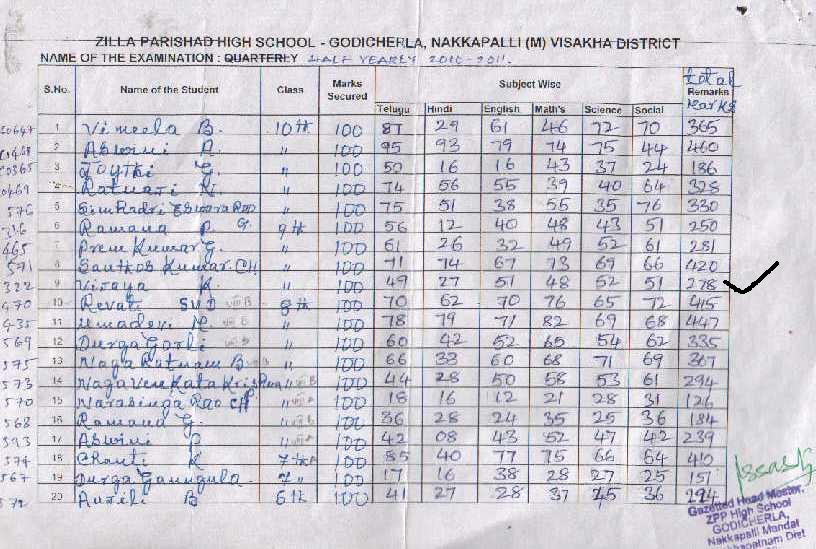 ZILLA PARISHAD HIGH SCHOOL - GODICHERLA, NAKKAPALLI (M) VISAKHA DISTRICT
NAME OF THE EXAMINATION : QUARTERLY HALF YEARLY 2010-2011.
S.No. Name of the Student Class Marks Secured Subject Wise total Remarks Marks
Telugu Hindi English Math's Science Social
1 Vimeela B. 10th 100 87 29 61 46 72 70 365
2 Aswini P. " 100 95 93 79 74 75 44 460
3 Joythi G. " 100 50 16 16 43 37 24 186
4 Ratnari K. " 100 74 56 55 39 40 64 328
576 5 Simhadri Eswara Rao G. " 100 75 51 38 55 35 76 330
6 Ramana P. 9th 100 56 12 40 48 43 51 250
465 7 Prem Kumar G. " 100 61 26 32 49 52 61 281
591 8 Santhos Kumar.CH " 100 71 74 67 73 69 66 420
322 9 Vijaya K. " 100 49 27 51 48 52 51 278
470 10 Revati SVD VIII B 8th 100 70 62 70 76 65 72 415
435 11 Umadevi M. VIII B " 100 78 79 71 82 69 68 447
569 12 Durga Gorli VIII B " 100 60 42 52 65 54 62 335
575 13 Naga Ratnam B VIII B " 100 66 33 60 68 71 69 367
573 14 Naga Venkata Krishna " VIII B 100 44 28 50 58 53 61 294
570 15 Narasinga Rao CH " VIII A 100 18 16 12 21 28 31 126
568 16 Ramana G. " VIII A 100 36 28 24 35 25 36 184
593 17 Aswini P " VIII A 100 42 08 43 52 47 42 239
574 18 Chanti K 7th A 100 85 40 77 75 66 64 410
567 19 Durga Ganngula 7 " 100 17 16 38 28 27 25 151
572 20 Aurili B 6th 100 41 27 28 37 45 36 294
Gazetted Head Master,
ZPP High School
GODICHERLA,
Nakkapalli Mandal